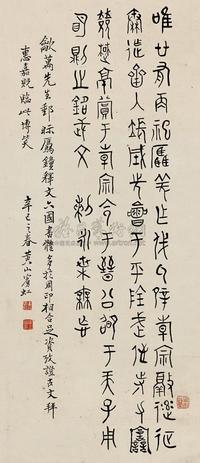 唯廿又再祀驫羌乍戎氒辟韓宗敲達征
秦迮齊入長城先會于平陰武侄寺力譶
敓楚京賞于韓宗令于晉公卲于天子用
明則之銘武文剌永枼毋忘
先生郵眎驫鐘釋文六國書體多於周印相合足資攷證古文拜
惠嘉貺臨此博笑
辛巳之春黄山賓虹